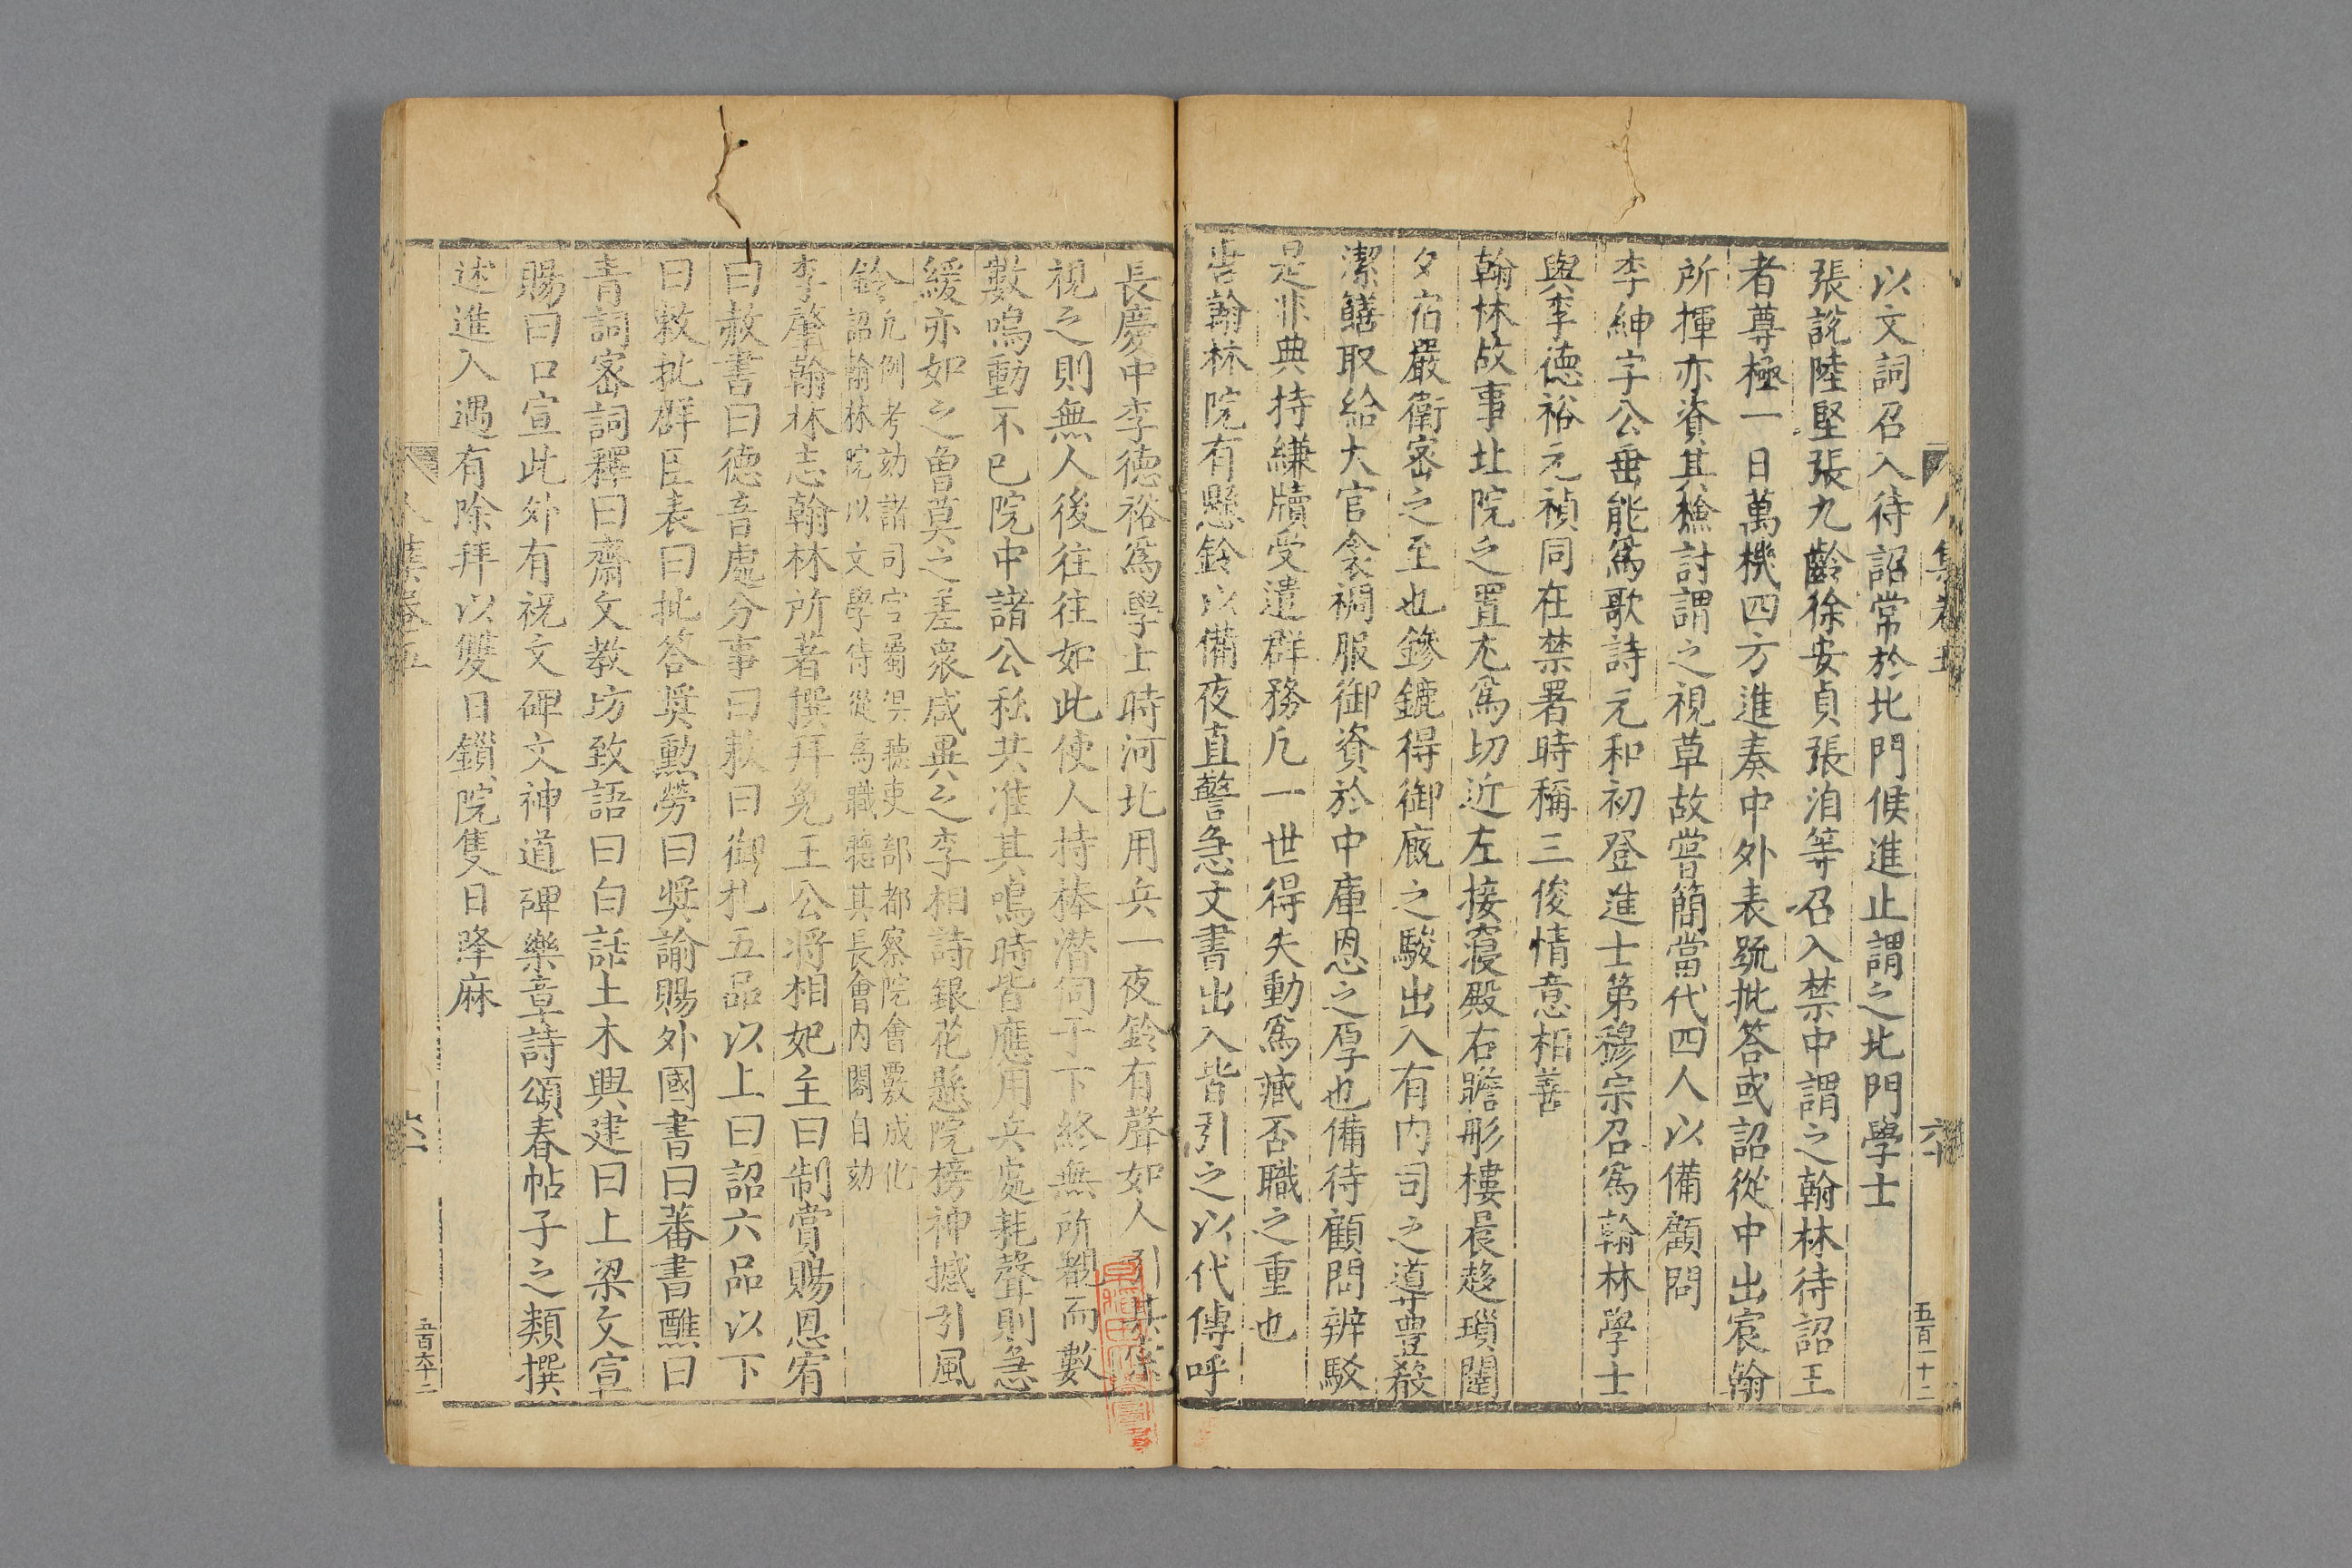 以文詞召入待詔常於北門候進止謂之北門學士
張說陸堅張九齡徐安貞張洎等召入禁中謂之翰林待詔王
者尊極一日萬機四方進奏中外表䟽批答或詔從中出宸翰
所揮亦資其檢討謂之視草故嘗簡當代四人以備顧問
李紳字公垂能爲歌詩元和初登進士第穆宗召爲翰林學士
與李德裕元禎同在禁署時稱三俊情意相善
翰林故事北院之置尤爲切近左接寢殿右瞻彤樓晨趍瑣闥
夕宿嚴衛密之至也鏒鑣得御廐之駿出入有内司之導豊殽
潔饍取給大官衾裯服御資於中庫恩之厚也備待顧問辨駁
是非典持縑牘受遣群務凡一世得失動爲臧否職之重也
皆翰林院有懸鈴以備夜直警急文書出入皆引之以代傳呼
長慶中李德裕爲學士時河北用兵一夜鈴有聲如人引其
視之則無人後往往如此使人持捧潜伺于下終無所覩而數
數鳴動不已院中諸公私共准其鳴時皆應用兵處耗聲則急
緩亦如之曾莫之差衆咸異之李相詩銀花懸院榜神撼引風
鈴九例考劾諸司官屬俱聽吏部都察院會覈成化
詔翰林院以文學侍從爲職聽其長會内閣自劾
李肇翰林志翰林所著撰拜免王公將相妃主曰制賞賜恩宥
曰赦書曰德音處分事曰敕曰御札五品以上曰詔六品以下
曰敕批群臣表曰批答奬勲勞曰奬諭賜外國書曰蕃書醮曰
青詞密詞釋曰齋文教坊致語曰白話土木興建曰上梁文宣
賜曰口宣此外有祝文碑文神道碑樂章詩頌春帖子之類撰
述進入遇有除拜以雙日鎖院隻日降麻
集卷五
六十
五百一十二
集卷五
六十一
五百六十二